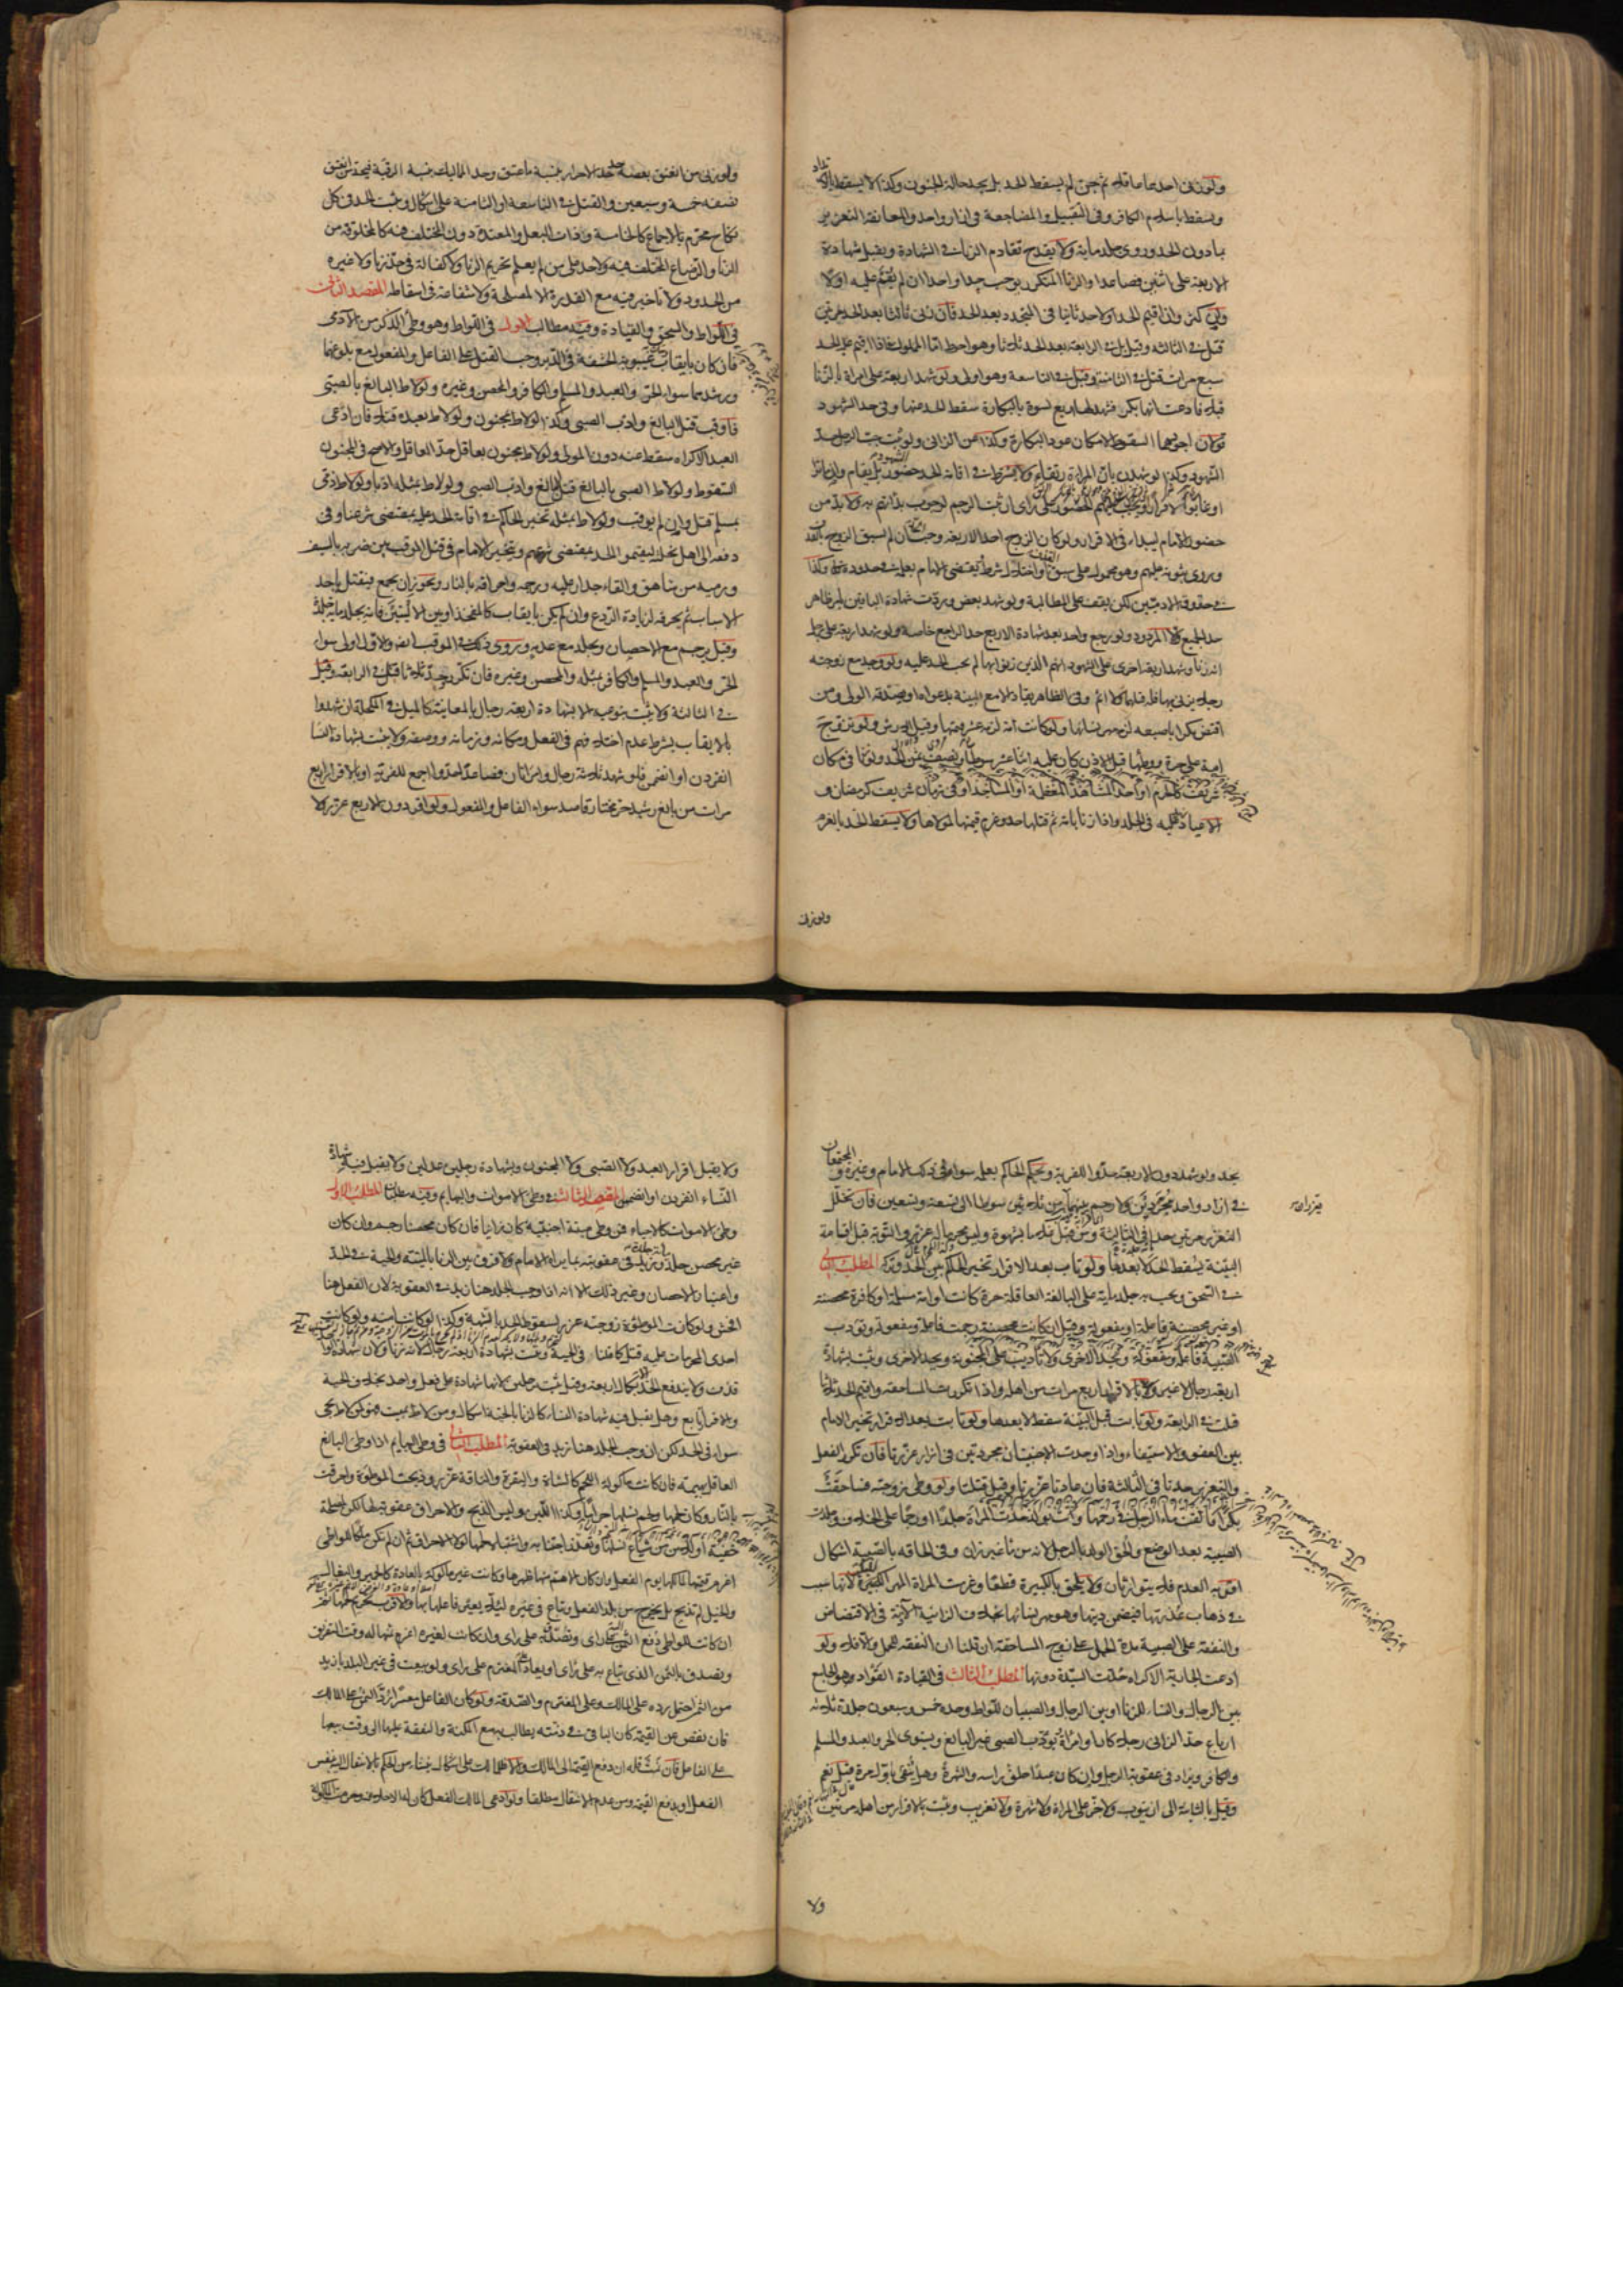 ولو زنى احدهما عاقلا ثم جن لم يسقط الحد بل يحد حالة الجنون وكذا لا يسقط بالارتداد
ويسقط باسلام الكافر وفى التقبيل والمضاجعة فى ازار واحد والمعانقة التعزير
بما دون الحد وروى جلد ماية ولا يقدح تقادم الزنا فى الشهادة ويقبل شهادة
الاربعة على اثنين فصاعدا والزنا المتكرر يوجب حدا واحدا ان لم يقم عليه اولا
وان كثر وان اقيم الحد اولا حد ثانيا فى المتجدد بعد الحد فان زنى ثالثا بعد الحد مرتين
قتل فى الثالثة وقيل بل فى الرابعة بعد الحد ثلاثا وهو احوط اما المملوك فاذا اقيم عليه الحد
سبع مرات قتل فى الثامنة وقيل فى التاسعة وهو اولى ولو شهد اربعة على امراة بالزنا
قبلا فادعت انها بكر فشهد لها اربع نسوة بالبكارة سقط الحد عنها وفى حد الشهود
قولان اجودهما السقوط لامكان عود البكارة وكذا عن الزانى ولو ثبت جب الرجل حد
الشهود وكذا لو شهدن بان المراة رتقاء ولا يشترط فى اقامة الحد حضور الشهود بل يقام وان ماتوا
او غابوا لا فرارا ويجب عليهم الحضور على راى ان ثبت الرجم لوجوب بدأتهم به ولا بد من
حضور الامام ليبدأ فى الاقرار ولو كان الزوج احد الاربعة وجب الحد ان لم يسبق الزوج بالقذف
وروى ثبوته عليهم وهو محمول على سبق القذف او اختلال شرط يقضى الامام بعلمه فى حدوده تعالى وكذا
فى حقوق الادميين لكن يقف على المطالبة ولو شهد بعض وردت شهادة الباقين بامر ظاهر
حد الجميع والا المردود ولو رجع واحد بعد شهادة الاربع حد الراجع خاصة ولو شهد اربعة على رجل
انه زنا وشهد اربعة اخرى على الشهود انهم الذين زنوا بها لم يجب الحد عليه ولو وجد مع زوجته
رجلا يزنى بها فله قتلهما ولا اثم وفى الظاهر يقاد الا مع البينة بدعواه او يصدقه الولى ومن
افتض بكرا باصبعه لزمه مهر نسائها ولو كانت امة لزمه عشر قيمتها وقيل الارش ولو تزوج
امة على حرة ووطئها قبل الاذن كان عليه اثنا عشر سوطا ونصف ثمن الحد ولو زنا فى مكان
شريف كالحرم او احد المشاهد المعظمة او المساجد او فى زمان شريف كرمضان و
الاعياد زيد عليه فى الجلد واذا زنا بامة ثم قتلها حد وغرم قيمتها لمولاها ولا يسقط الحد بالغرم
ولو زنى
ولو زنى من انعتق بعضه حد حد الاحرار بنسبة ما عتق وحد المماليك بنسبة الرقية فيحد من انعتق
نصفه خمسة وسبعين والقتل فى التاسعة او الثامنة على اشكال ويثبت الحد فى كل
نكاح محرم بالاجماع كالخامسة وذات البعل والمعتدة دون المختلف فيه كالمخلوقة من
الزنا والرضاع المختلف فيه ولا حد على من لم يعلم تحريم الزنا ولا كفالة فى حد زنا ولا غيره
من الحدود ولا تاخير فيه مع القدرة الا لمصلحة ولا شفاعة فى اسقاطه المقصد الثانى
فى اللواط والسحق والقيادة وفيه مطالب الاول فى اللواط وهو وطى الذكر من الآدمى
فان كان بايقاب غيبوبة الحشفة فى الدبر وجب القتل على الفاعل والمفعول مع بلوغهما
ورشدهما سواء الحر والعبد والمسلم والكافر والمحصن وغيره ولو لاط البالغ بالصبى
فاوقب قتل البالغ وادب الصبى وكذا لو لاط بمجنون ولو لاط بعبده قتلا فان ادعى
العبد الاكراه سقط عنه دون المولى ولو لاط مجنون بعاقل حد العاقل والاصح فى المجنون
السقوط ولو لاط الصبى بالبالغ قتل البالغ وادب الصبى ولو لاط بمثله ادبا ولو لاط ذمى
بمسلم قتل وان لم يوقب ولو لاط بمثله تخير الحاكم فى اقامة الحد عليه بمقتضى شرعنا وفى
دفعه الى اهل نحلته ليقيموا الحد بمقتضى شرعهم ويتخير الامام فى قتل الموقب بين ضربه بالسيف
ورميه من شاهق والقاء جدار عليه ورجمه واحراقه بالنار ويجوز ان يجمع فيقتل باحد
الاسباب ثم يحرقه لزيادة الردع وان لم يكن بايقاب كالمفخذ او بين الاليتين فانه يجلد ماية جلدة
وقيل يرجم مع الاحصان ويجلد مع عدمه وروى ذلك فى الموقب ايضا والاول اولى سواء
الحر والعبد والمسلم والكافر بمثله والمحصن وغيره فان تكرر وحد ثلاثا قتل فى الرابعة وقيل
فى الثالثة ولا يثبت بنوعيه الا بشهادة اربعة رجال بالمعاينة كالميل فى المكحلة ان شهدوا
بالايقاب بشرط عدم اختلافهم فى الفعل ومكانه وزمانه ووصفه ولا يثبت بشهادة النساء
انفردن او انضممن فلو شهد ثلاثة رجال وامراتان فصاعدا حدوا اجمع للفرية او بالاقرار اربع
مرات من بالغ رشيد حر مختار قاصد سواء الفاعل والمفعول ولو اقر دون الاربع عزر ولا
يحد ولو شهد دون الاربعة حدوا للفرية ويحكم الحاكم بعلمه سواء فى ذلك الامام وغيره والمجتمعان
فى ازار واحد مجردين ولا رحم بينهما يعزران من ثلاثين سوطا الى تسعة وتسعين فان تخلل
التعزير مرتين حدا فى الثالثة ومن قبل غلاما بشهوة وليس محرما له عزر والتوبة قبل اقامة
البينة يسقط الحد لا بعدها ولو تاب بعد الاقرار تخير الحاكم بين الحد وتركه المطلب الثانى
فى السحق ويجب به جلد ماية على البالغة العاقلة حرة كانت او امة مسلمة او كافرة محصنة
او غير محصنة فاعلة او مفعولة وقيل ان كانت محصنة رجمت فاعلة ومفعولة وتؤدب
الصبية فاعلة ومفعولة وتحد الاخرى ولا تاديب على المجنونة ويحد الاخرى ويثبت بشهادة
اربعة رجال لا غير او بالاقرار اربع مرات من اهله واذا تكررت المساحقة واقيم الحد ثلاثا
قتلت فى الرابعة ولو تابت قبل البينة سقط لا بعدها ولو تابت بعد الاقرار تخير الامام
بين العفو والاستيفاء واذا وجدت الاجنبيتان مجردتين فى ازار عزرتا فان تكرر الفعل
والتعزير حدتا فى الثالثة فان عادتا عزرتا وقيل قتلتا ولو وطى زوجته فساحقت
بكرا فالقت ماء الرجل فى رحمها واتت بولد حدت المراة جلدا او رجما على الخلاف وجلدت
الصبية بعد الوضع والحق الولد بالرجل لانه من ماء غير زان وفى الحاقه بالصبية اشكال
اقربه العدم فلا يتوارثان ولا يلحق بالكبيرة قطعا وغرمت المراة المهر للبكر لانها سبب
فى ذهاب عذرتها فيضمن ديتها وهو مهر نسائها بخلاف الزانية الآذنة فى الافتضاض
والنفقة على الصبية مدة الحمل على زوج المساحقة ان قلنا ان النفقة للحمل والا فلا ولو
ادعت الجارية الاكراه حدت السيدة دونها المطلب الثالث فى القيادة القواد هو الجامع
بين الرجال والنساء للزنا او بين الرجال والصبيان للواط وحده خمس وسبعون جلدة ثلاثة
ارباع حد الزانى رجلا كان او امراة ويؤدب الصبى غير البالغ ويستوى الحر والعبد والمسلم
والكافر ويزاد فى عقوبة الرجل وان كان عبدا حلق راسه والشهرة وهل ينفى باول مرة قيل نعم
وقيل بالثانية الى ان يتوب ولا جز على المراة ولا شهرة ولا تغريب ويثبت بالاقرار من اهله مرتين
ولا
ولا يقبل اقرار العبد ولا الصبى ولا المجنون وبشهادة رجلين عدلين ولا يقبل فيه شهادة
النساء انفردن او انضممن المقصد الثالث فى وطى الاموات والبهايم وفيه مطلبان المطلب الاول
وطى الاموات كالاحياء فمن وطى ميتة اجنبية كان زانيا فان كان محصنا رجم وان كان
غير محصن جلد ويزيد فى عقوبته بما يراه الامام ولا فرق بين الزنا بالميتة والحية فى الحد
واعتبار الاحصان وغير ذلك الا انه اذا وجب الجلد هنا زيد فى العقوبة لان الفعل هنا
افحش ولو كانت الموطؤة زوجته عزر لسقوط الحد بالشبهة وكذا لو كانت امته ولو كانت
احدى المحرمات عليه قتل كما قلنا فى الحية ويثبت بشهادة اربعة رجال لانه زنا ولان شهادة الواحد
قذف ولا يندفع الحد الا بكمال اربعة وقيل يثبت برجلين لانها شهادة على فعل واحد بخلاف الحية
وبالاقرار اربع وهل يقبل فيه شهادة النساء كالزنا بالحية اشكال ومن لاط بميت فهو كمن لاط بحى
سواء فى الحد لكن ان وجب الجلد هنا زيد فى العقوبة المطلب الثانى فى وطى البهايم اذا وطى البالغ
العاقل بهيمة فان كانت مأكولة اللحم كالشاة والبقرة والناقة عزر وذبحت الموطؤة واحرقت
بالنار وكان لحمها ولحم نسلها حراما وكذا اللبن وليس الذبح والاحراق عقوبة لها لكن لمصلحة
خفية او للامن من شياع نسلها وتعذر اجتنابه واشتباه لحمها لولا الاحراق ثم ان لم تكن ملكا للواطى
اغرم قيمتها لمالكها يوم الفعل وان كان الاهم منها ظهرها وكانت غير مأكولة بالعادة كالحمير والبغال
والخيل لم تذبح بل يخرج من بلد الفعل وتباع فى غيره لئلا يعير فاعلها بها والاقرب تحريم لحمها ثم
ان كانت للواطى دفع الثمن اليه على راى وتصدق به على راى وان كانت لغيره اغرم ثمنها له وقت التفريق
وتصدق بالثمن الذى تباع به على راى او يعاد على المغترم على راى ولو بيعت فى غير البلد بازيد
من الثمن احتمل رده على المالك وعلى المغترم والصدقة ولو كان الفاعل معسرا رد الثمن على المالك
فان نقص عن القيمة كان الباقى فى ذمته يطالب به مع المكنة والنفقة عليها الى وقت بيعها
على الفاعل فان نمت فله ان دفع القيمة الى المالك والا فللمالك على اشكال ينشا من الحكم بالانتقال اليه بنفس
الفعل او بدفع القيمة ومن عدم الانتقال مطلقا ولو ادعى المالك الفعل كان له الاحلاف وحرمت المأكولة